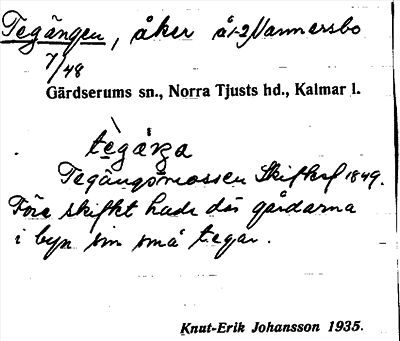 Tegången, åker å 1-2 Nannersbo
7/48
Gärdserums sn., Norra Tjusts hd., Kalmar l.
Tegångsmossen Skifteskf 1849.
Före skiftet hade de gårdarna
i byn sin små tegar.
Knut-Erik Johansson 1935.